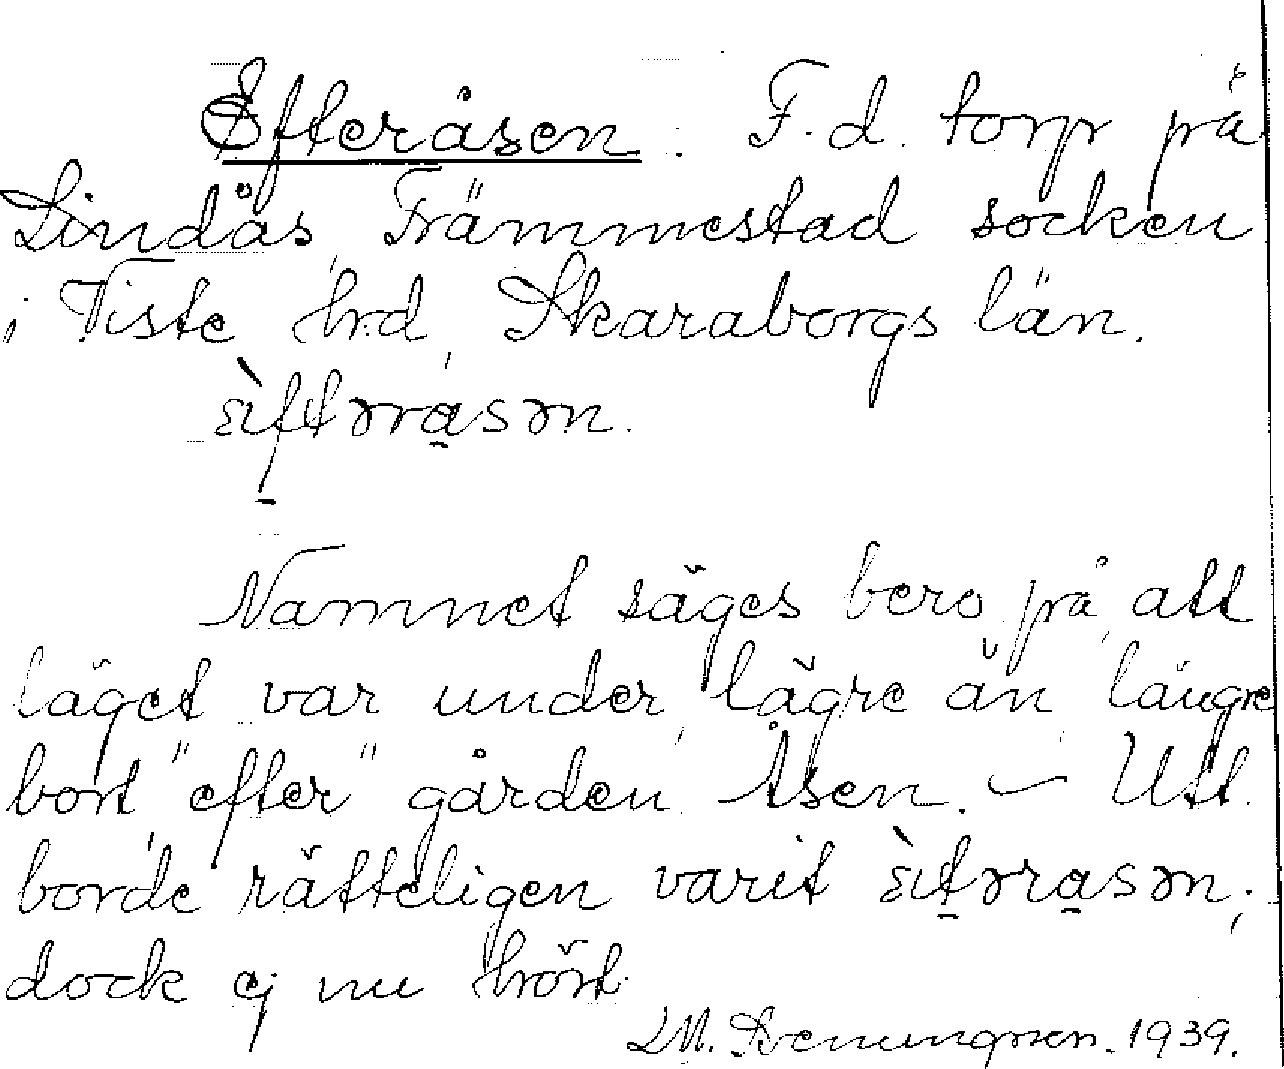 Efteråsen. F.d. torp på
Lindås, Främmestad socken
i Viste hrd, Skaraborgs län.
Namnet säges bero på, att
läget var under, lägre än, längre
bort "efter" gården Åsen. – Utt.
borde rätteligen varit
dock ej nu hört.
1939.